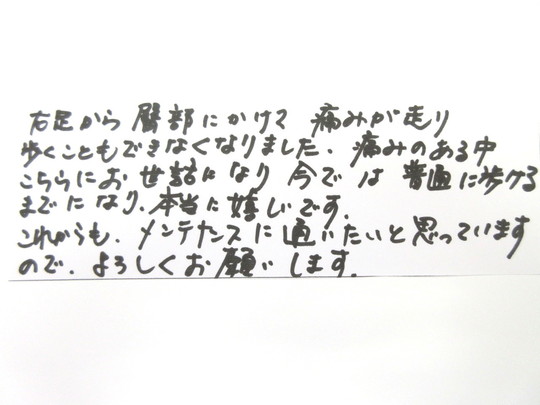 右足から臀部にかけて 痛みが走り
歩くこともできなくなりました. 痛みのある中
こちらにお世話になり 今では 普通に歩ける
までになり. 本当に嬉しいです.
これからも. メンテナンスに通いたいと思っています
ので. よろしくお願いします.